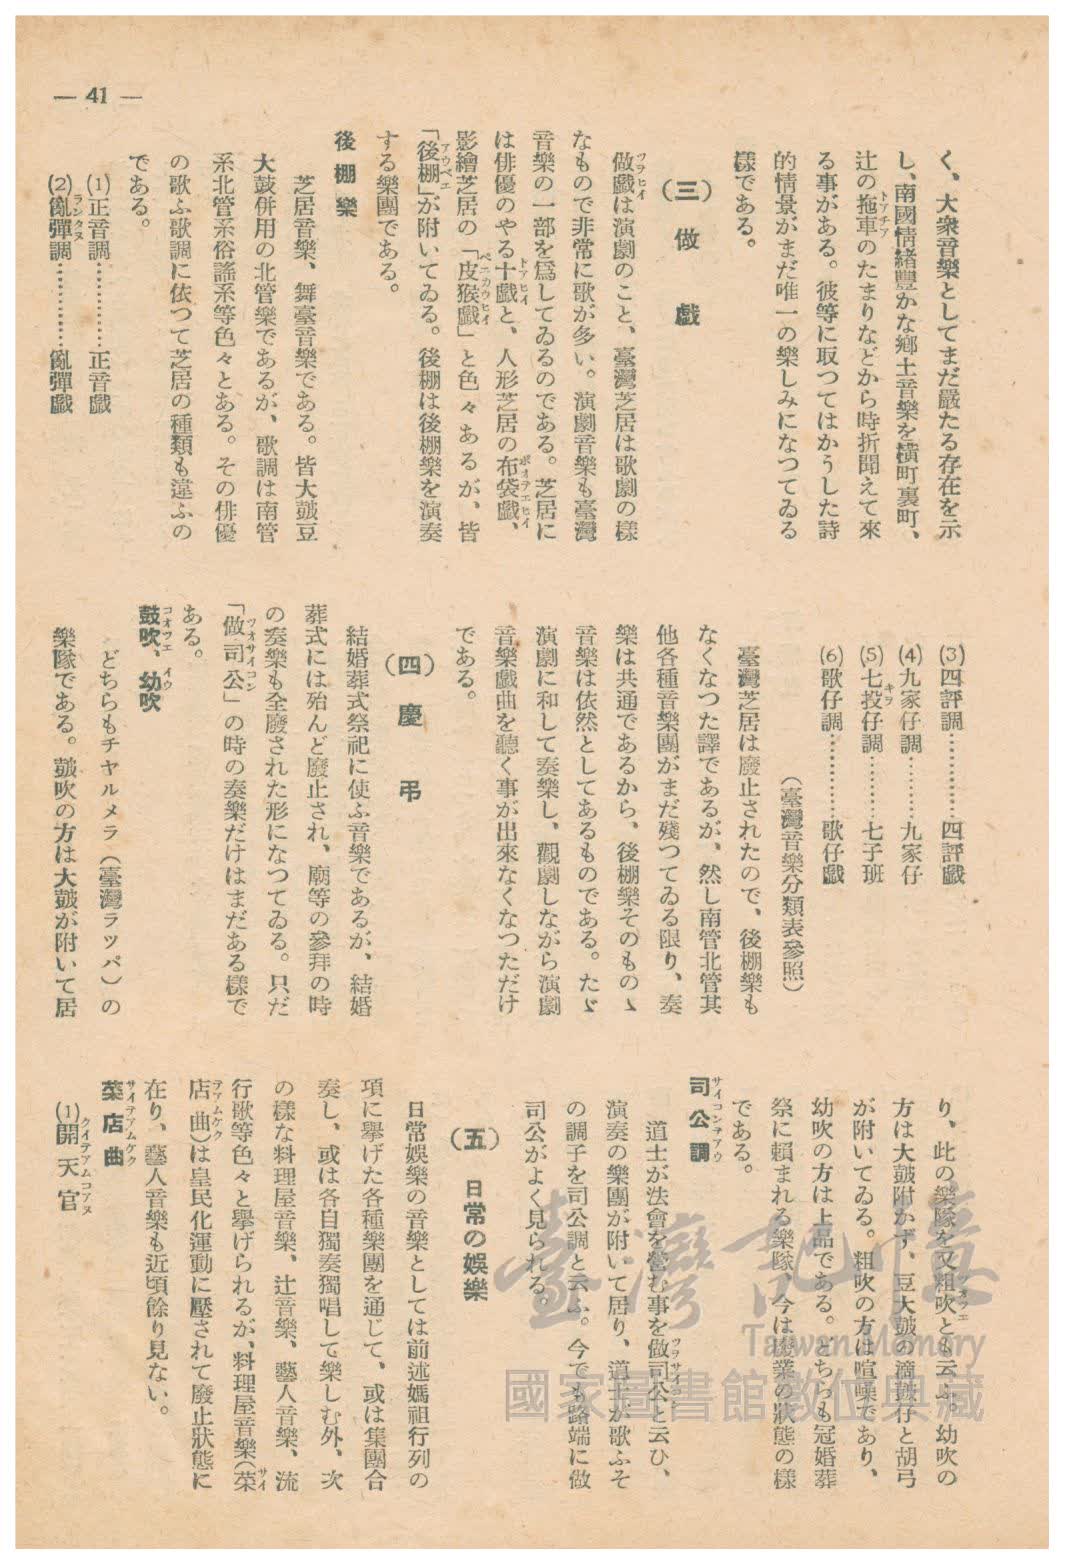 — 41 —
く、大衆音樂としてまだ嚴たる存在を示
し、南國情緒豐かな鄕土音樂を橫町裏町、
辻の拖車のたまりなどから時折聞えて來
る事がある。彼等に取つてはかうした詩
的情景がまだ唯一の樂しみになつてゐる
樣である。
(三) 做戲
做戲は演劇のこと、臺灣芝居は歌劇の樣
なもので非常に歌が多い。演劇音樂も臺灣
音樂の一部を爲してゐるのである。芝居に
は俳優のやる十戲と、人形芝居の布袋戲、
影繪芝居の「皮猴戲」と色々あるが、皆
「後棚」が附いてゐる。後棚は後棚樂を演奏
する樂團である。
後棚樂
芝居音樂、舞臺音樂である。皆大皷豆
大鼓併用の北管樂であるが、歌調は南管
系北管系俗謠系等色々とある。その俳優
の歌ふ歌調に依つて芝居の種類も違ふの
である。
(1)正音調…………正音戲
(2)亂彈調…………亂彈戲
(3)四評調…………四評戲
(4)九家仔調………九家仔
(5)七投仔調………七子班
(6)歌仔調…………歌仔戲
(臺灣音樂分類表參照)
臺灣芝居は廢止されたので、後棚樂も
なくなつた譯であるが、然し南管北管其
他各種音樂團がまだ殘つてゐる限り、奏
樂は共通であるから、後棚樂そのものゝ
音樂は依然としてあるものである。たゞ
演劇に和して奏樂し、觀劇しながら演劇
音樂戲曲を聽く事が出來なくなつただけ
である。
(四) 慶弔
結婚葬式祭祀に使ふ音樂であるが、結婚
葬式には殆んど廢止され、廟等の參拜の時
の奏樂も全廢された形になつてゐる。只だ
「做司公」の時の奏樂だけはまだある樣で
ある。
鼓吹、幼吹
どちらもチヤルメラ(臺灣ラツパ)の
樂隊である。皷吹の方は大皷が附いて居
り、此の樂隊を又粗吹とも云ふ。幼吹の
方は大皷附かず、豆大皷の滴皷仔と胡弓
が附いてゐる。粗吹の方は喧噪であり、
幼吹の方は上品である。どちらも冠婚葬
祭に賴まれる樂隊、今は廢業の狀態の樣
である。
司公調
道士が法會を營む事を做司公と云ひ、
演奏の樂團が附いて居り、道士が歌ふそ
の調子を司公調と云ふ。今でも路端に做
司公がよく見られる。
(五) 日常の娛樂
日常娛樂の音樂としては前述媽祖行列の
項に擧げた各種樂團を通じて、或は集團合
奏し、或は各自獨奏獨唱して樂しむ外、次
の樣な料理屋音樂、辻音樂、藝人音樂、流
行歌等色々と擧げられるが、料理屋音樂(菜
店曲)は皇民化運動に壓されて廢止狀態に
在り、藝人音樂も近頃餘り見ない。
菜店曲
(1)開天官
臺灣記憶
Taiwan Memory
國家圖書館數位典藏